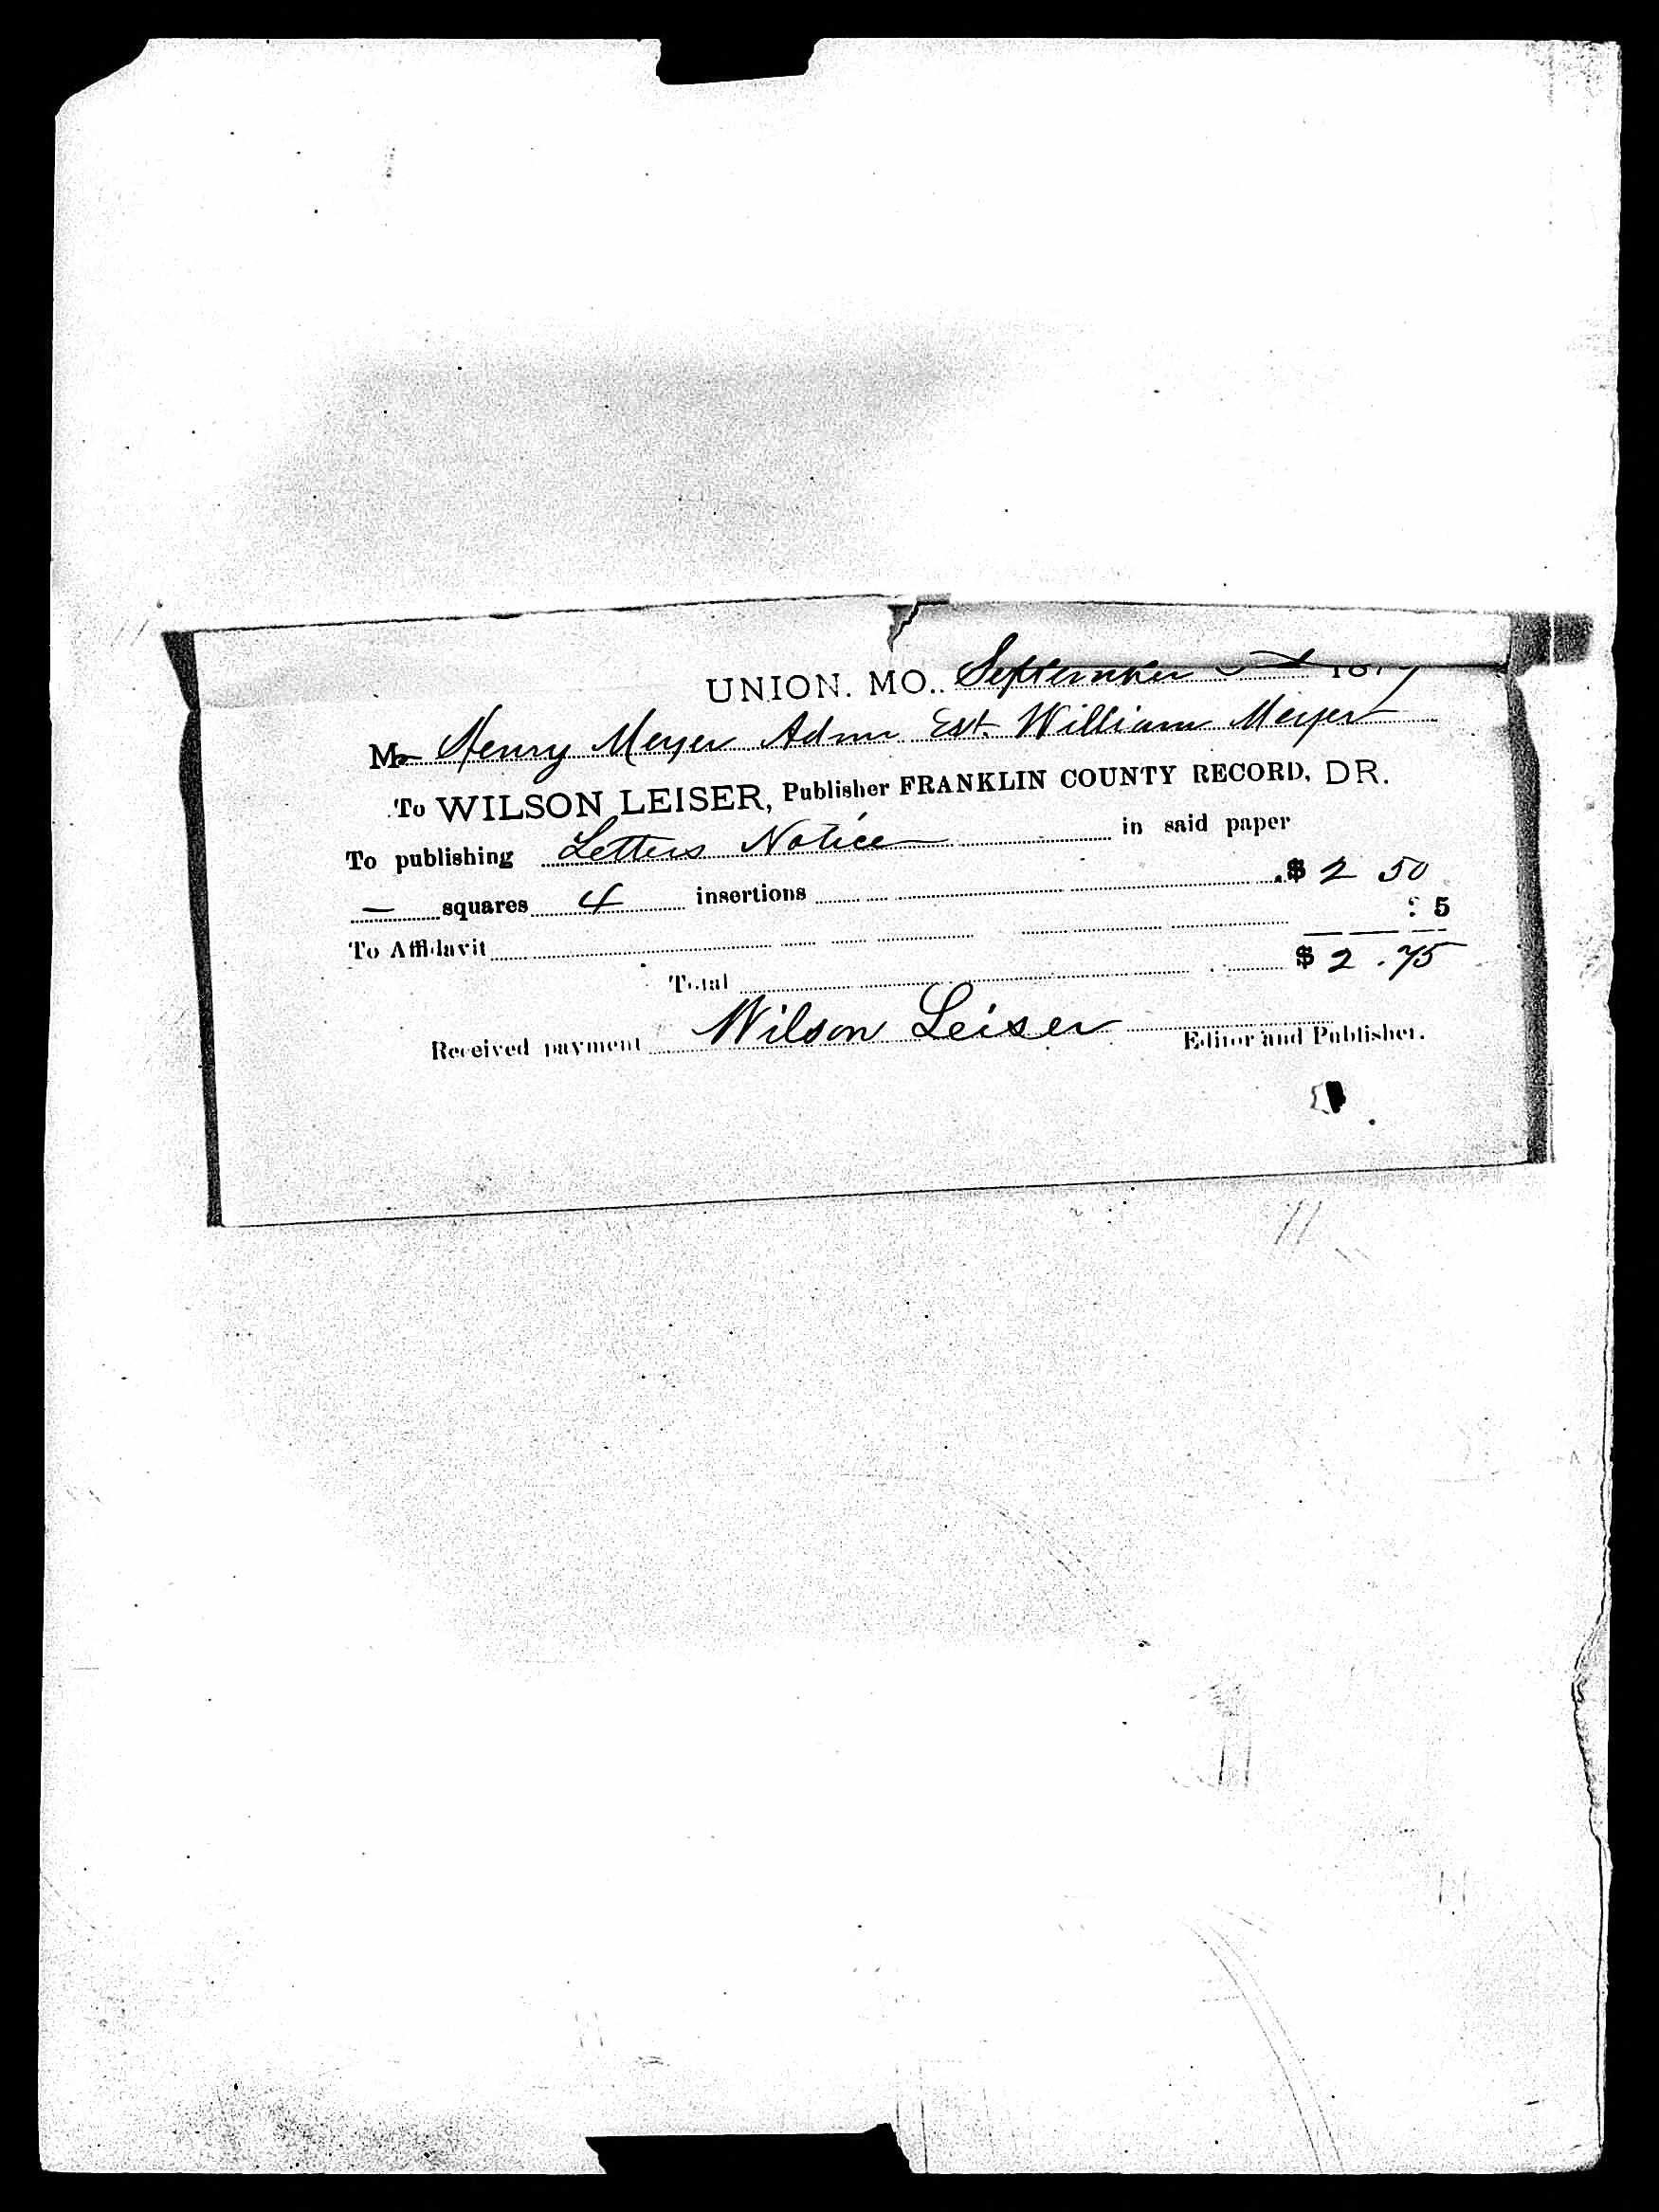 UNION. MO.. September
Mr Henry Meyer Admr Est. William Meyer
To WILSON LEISER, Publisher FRANKLIN COUNTY RECORD, DR.
To publishing Letters Notice in said paper
— squares 4 insertions $ 2 50
To Affidavit 25
Total $ 2.75
Received payment Wilson Leiser Editor and Publisher.